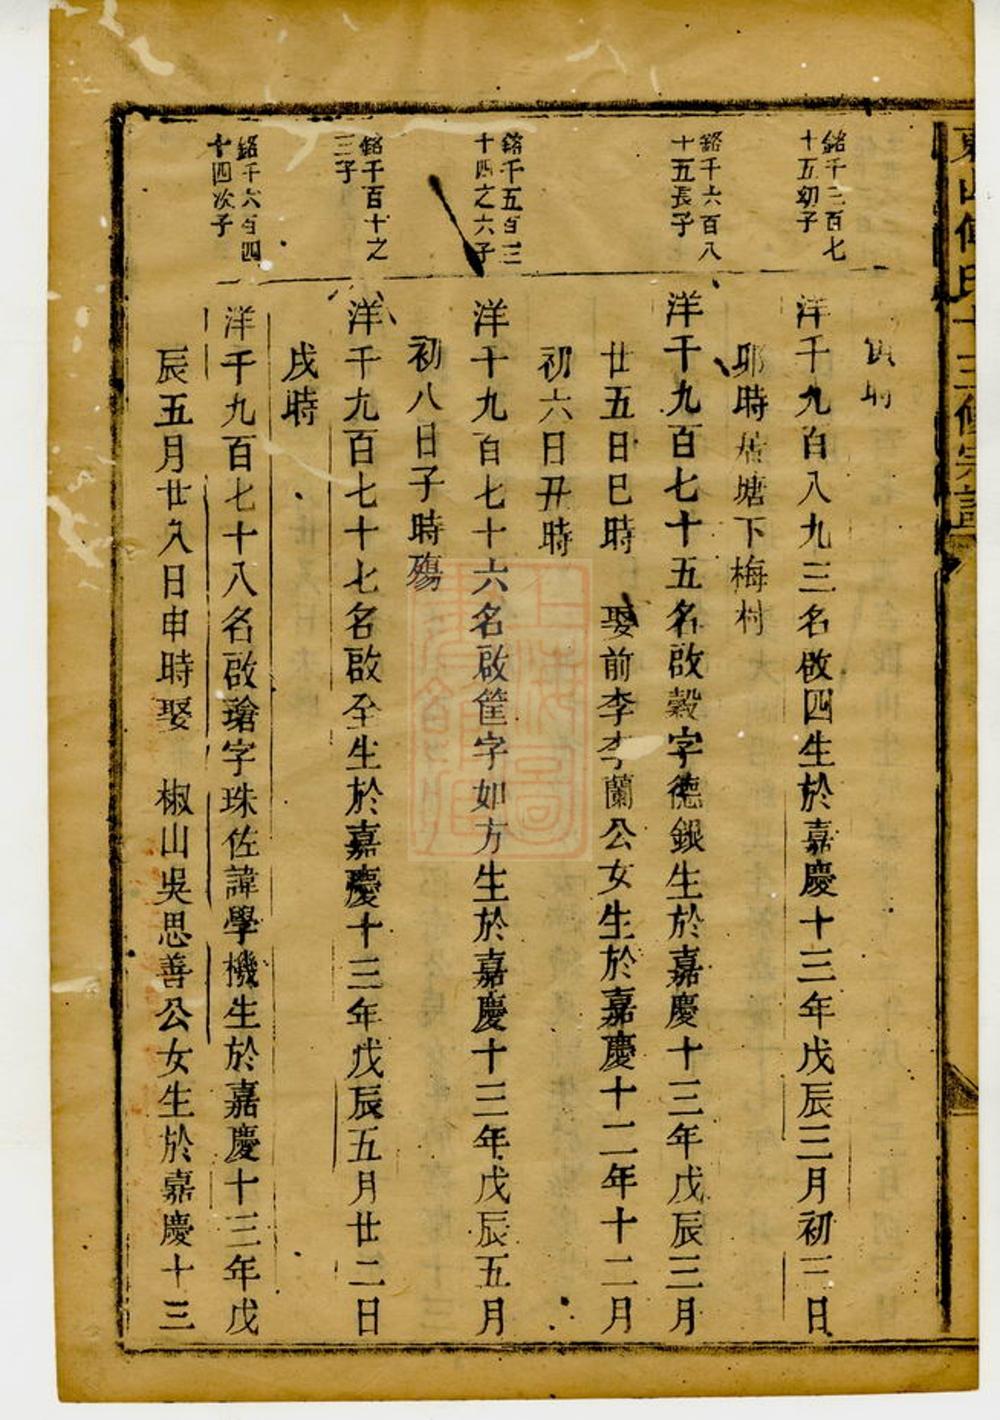 寅時
銘千三百七
十五幼子
洋千九百八九三名啟四生於嘉慶十三年戊辰三月初三日
耶時居塘下梅村
銘千六百八
十五長子
洋千九百七十五名啟穀字德銀生於嘉慶十三年戊辰三月
廿五日巳時 娶前李李蘭公女生於嘉慶十二年十二月
初六日丑時
銘千五百三
十四之六子
洋十九百七十六名啟筐字如方生於嘉慶十三年戊辰五月
初八日子時殤
銘千百十之
三子
洋千九百七十七名啟至生於嘉慶十三年戊辰五月廿二日
戌時
銘千六百四
十四次子
洋千九百七十八名啟瑲字珠佐諱學機生於嘉慶十三年戊
辰五月廿八日申時娶 椒山吳思善公女生於嘉慶十三